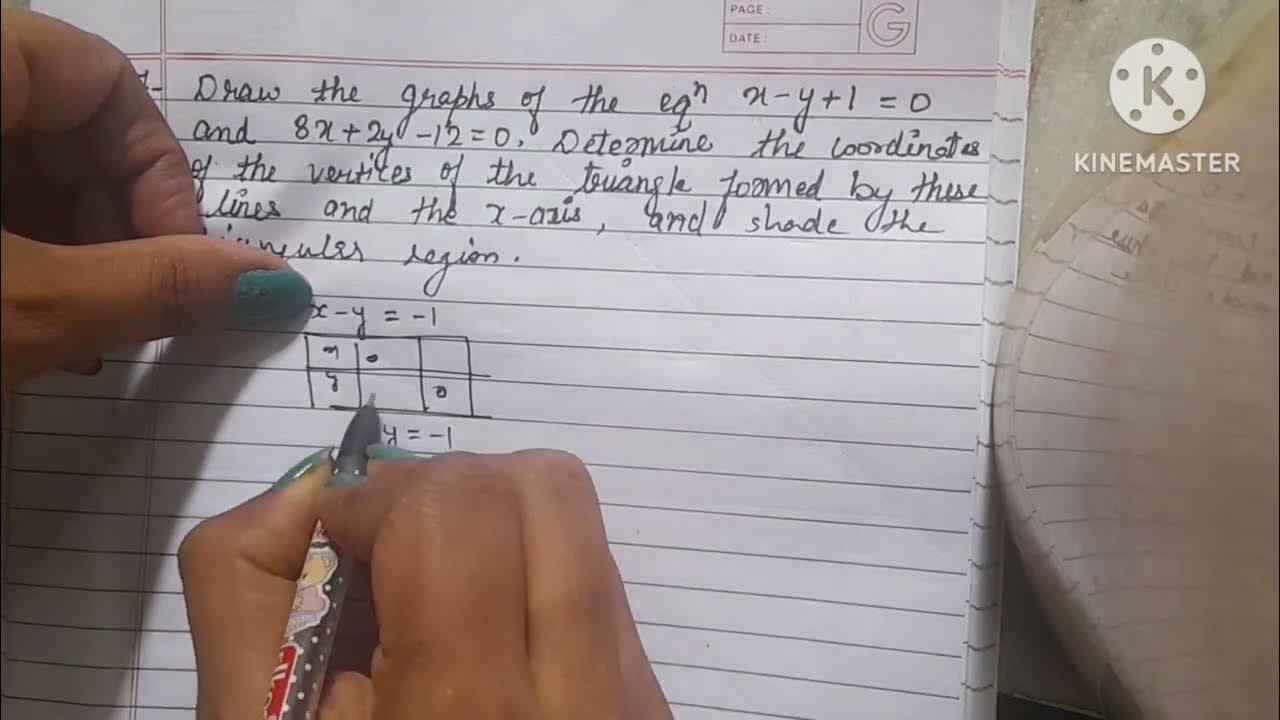 PAGE :
DATE :
G
K
KINEMASTER
Draw the graphs of the eqⁿ x-y+1 = 0
and 8x+2y-12=0. Determine the coordinates
of the vertices of the triangle formed by these
lines and the x-axis, and shade the
region.
x-y = -1
x 0
y 0
y = -1